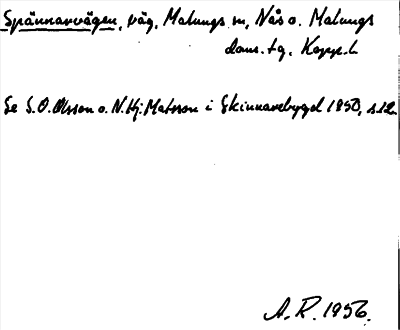 Spännarvägen, väg, Malungs sn, Nås o. Malungs
doms.tg. Kopp.l.
Se S.O. Olsson o. N. Hj. Matsson i Skinnarebygd 1950, s.12
A.R. 1956.